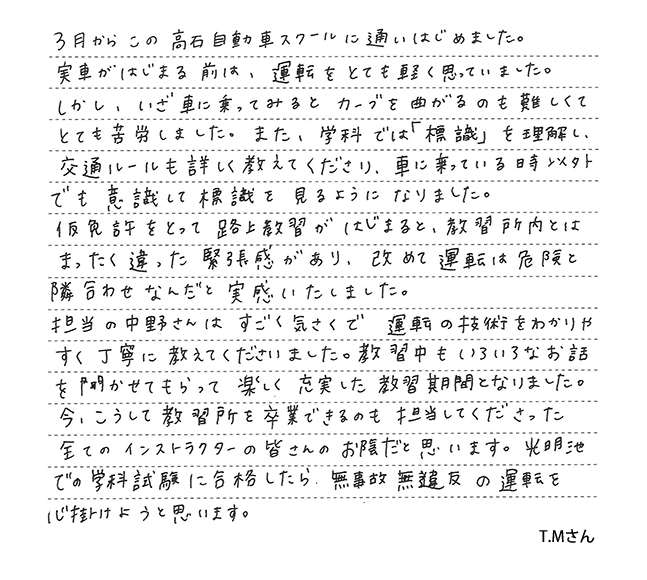 3月からこの高石自動車スクールに通いはじめました。
実車がはじまる前は、運転をとても軽く思っていました。
しかし、いざ車に乗ってみるとカーブを曲がるのも難しくて
とても苦労しました。また、学科では「標識」を理解し、
交通ルールも詳しく教えてくださり、車に乗っている時以外
でも意識して標識を見るようになりました。
仮免許をとって路上教習がはじまると、教習所内とは
まったく違った緊張感があり、改めて運転は危険と
隣合わせなんだと実感いたしました。
担当の中野さんはすごく気さくで 運転の技術をわかりや
すく丁寧に教えてくださいました。教習中もいろいろなお話
を聞かせてもらって楽しく充実した教習期間となりました。
今、こうして教習所を卒業できるのも担当してくださった
全てのインストラクターの皆さんのお陰だと思います。光明池
での学科試験に合格したら、無事故無違反の運転を
心掛けようと思います。
T.Mさん